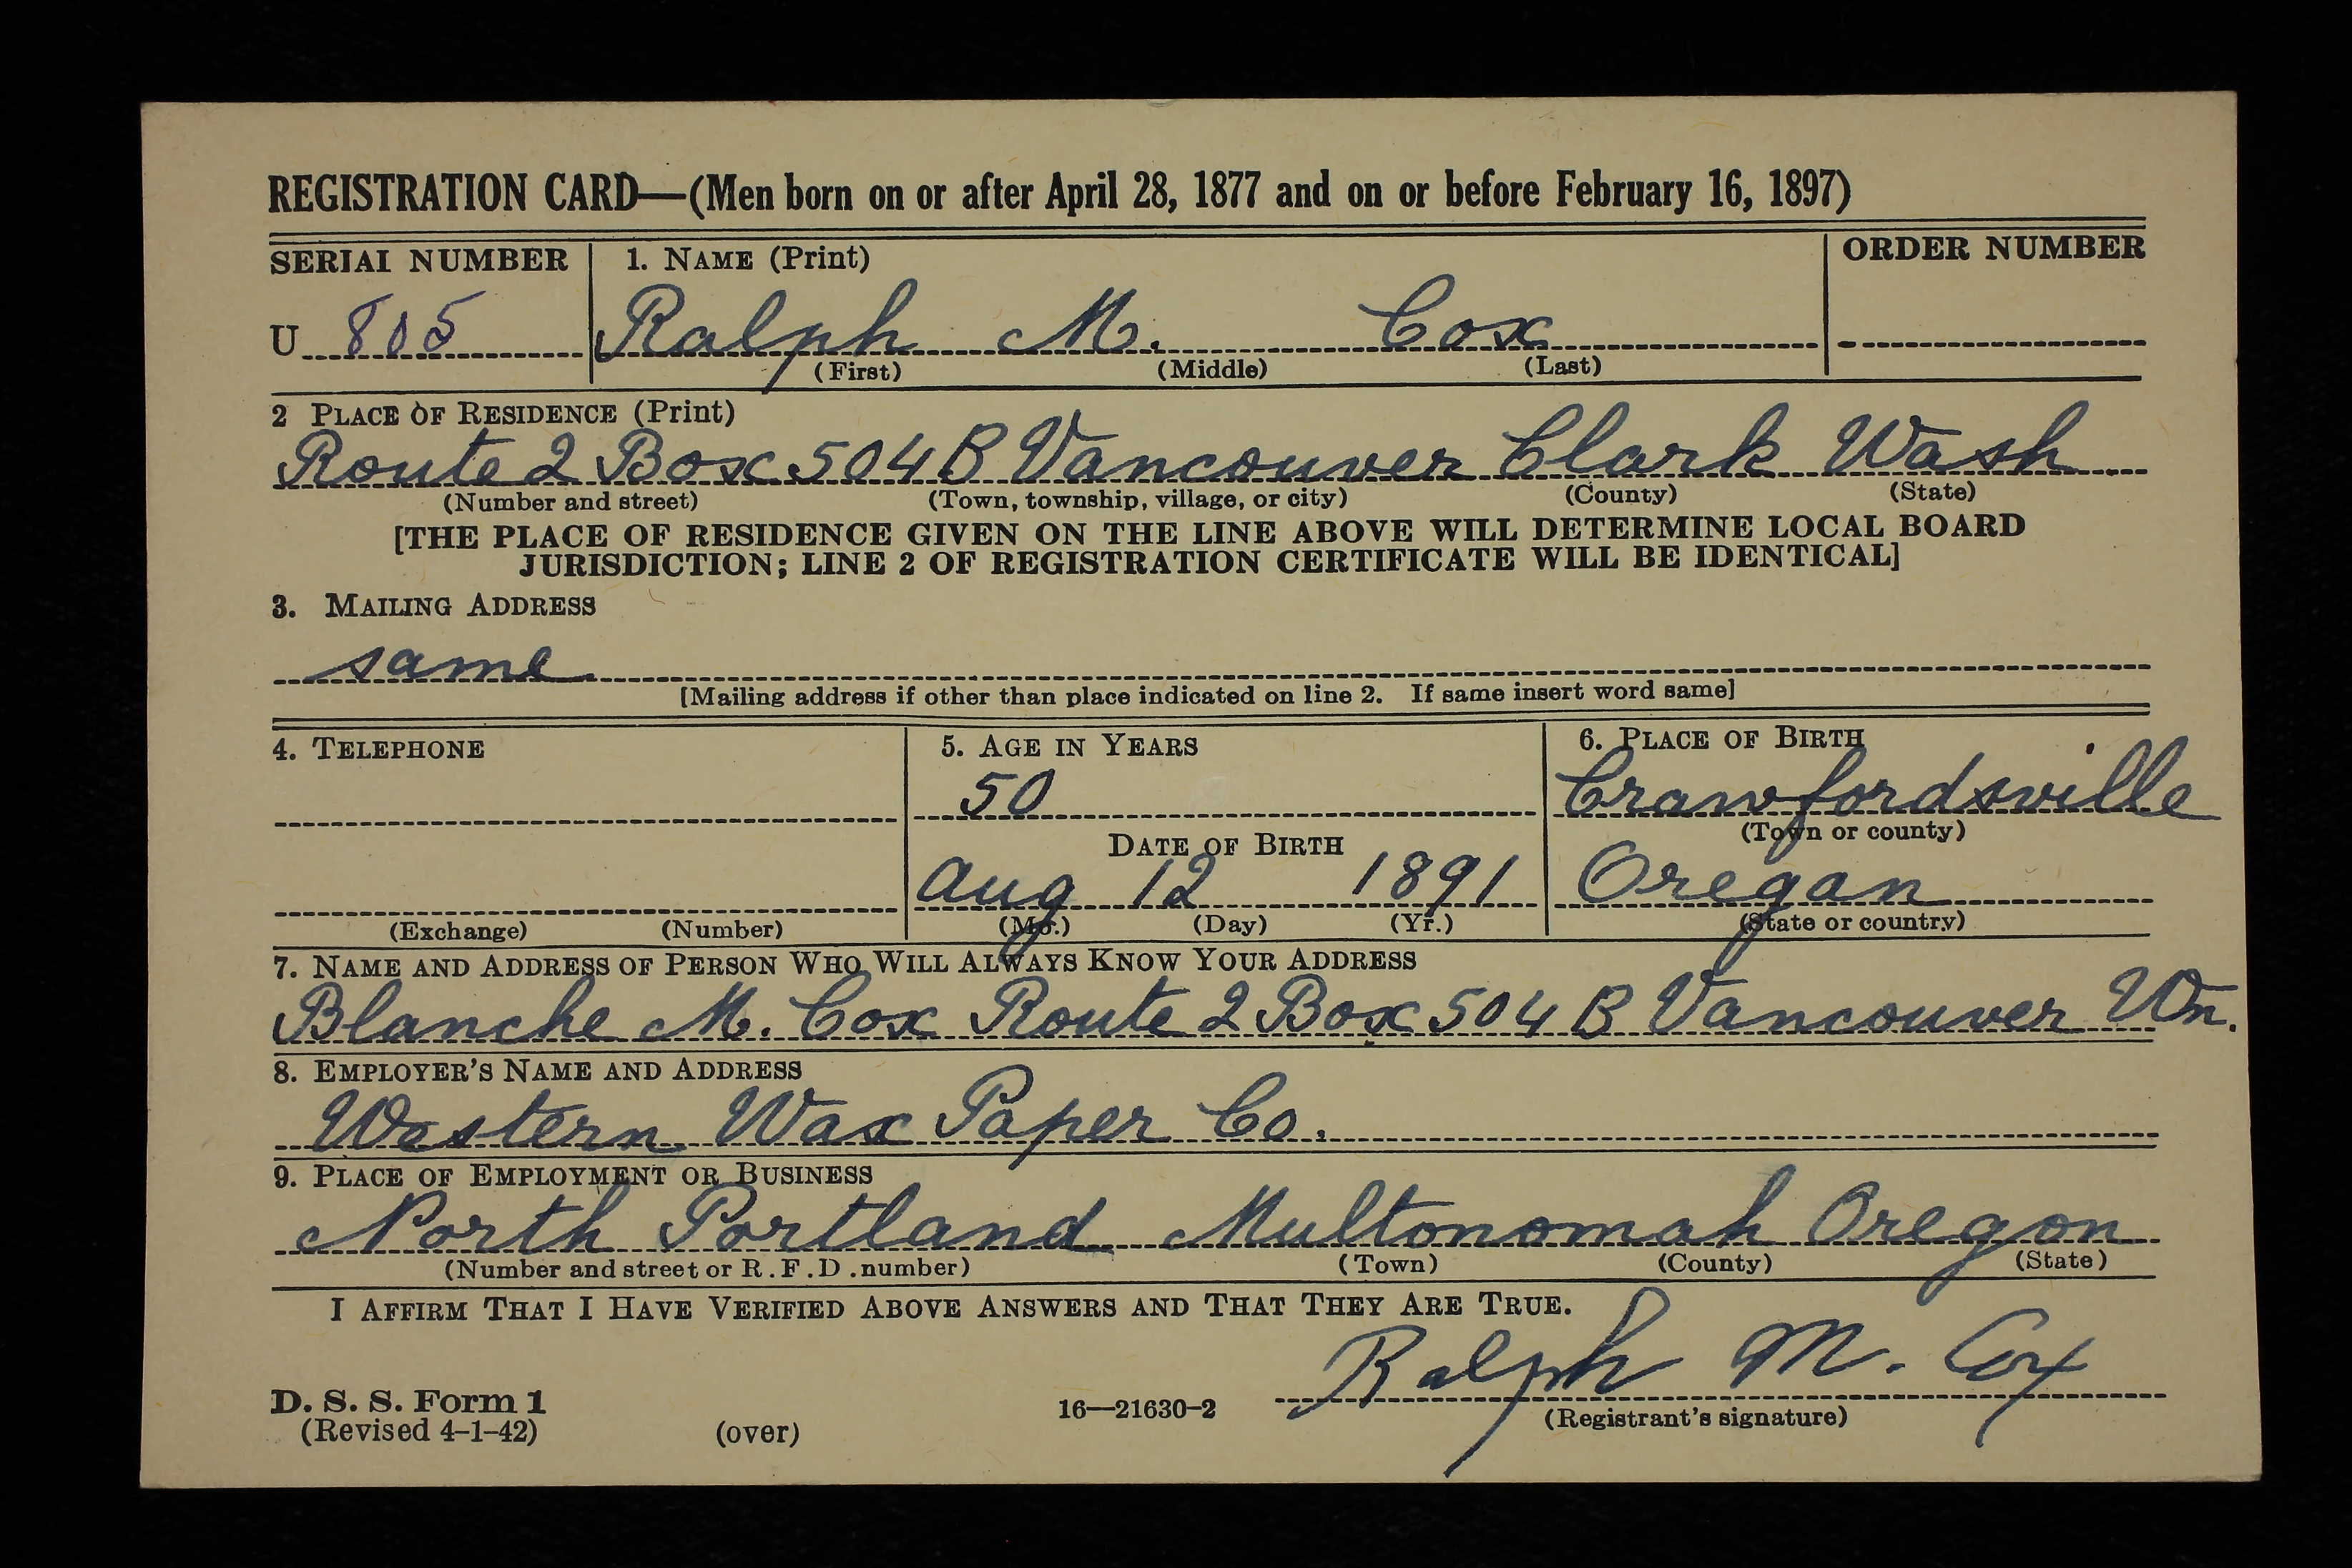 REGISTRATION CARD—(Men born on or after April 28, 1877 and on or before February 16, 1897)
SERIAL NUMBER 1. NAME (Print) ORDER NUMBER
U 805 Ralph M. Cox
(First) (Middle) (Last)
2 PLACE OF RESIDENCE (Print)
Route 2 Box 504 B Vancouver Clark Wash
(Number and street) (Town, township, village, or city) (County) (State)
[THE PLACE OF RESIDENCE GIVEN ON THE LINE ABOVE WILL DETERMINE LOCAL BOARD
JURISDICTION; LINE 2 OF REGISTRATION CERTIFICATE WILL BE IDENTICAL]
3. MAILING ADDRESS
same
[Mailing address if other than place indicated on line 2. If same insert word same]
4. TELEPHONE 5. AGE IN YEARS 6. PLACE OF BIRTH
50 Crawfordsville
DATE OF BIRTH (Town or county)
Aug 12 1891 Oregon
(Exchange) (Number) (Mo.) (Day) (Yr.) (State or country)
7. NAME AND ADDRESS OF PERSON WHO WILL ALWAYS KNOW YOUR ADDRESS
Blanche M. Cox Route 2 Box 504 B Vancouver Wn.
8. EMPLOYER'S NAME AND ADDRESS
Western Wax Paper Co.
9. PLACE OF EMPLOYMENT OR BUSINESS
North Portland Multonomah Oregon
(Number and street or R.F.D. number) (Town) (County) (State)
I AFFIRM THAT I HAVE VERIFIED ABOVE ANSWERS AND THAT THEY ARE TRUE.
Ralph M. Cox
D. S. S. Form 1
(Revised 4-1-42) (over) 16—21630-2 (Registrant's signature)